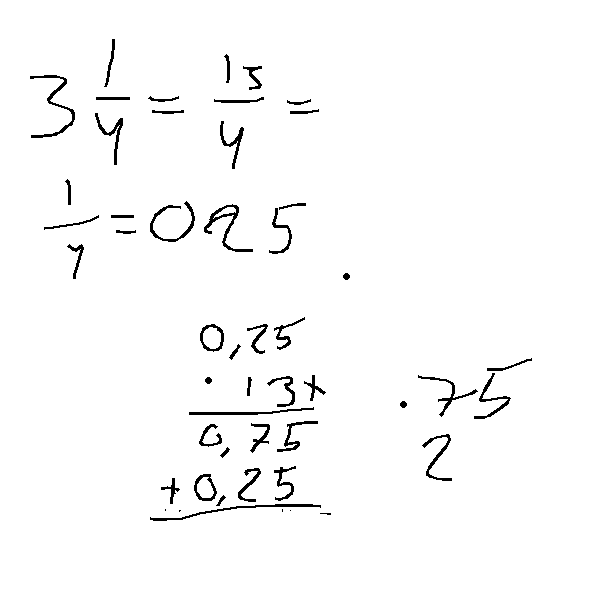 3 1/4 = 15/4 =
1/4 = 025
.
0,25
. 13x
0,75
+0,25
.75
2